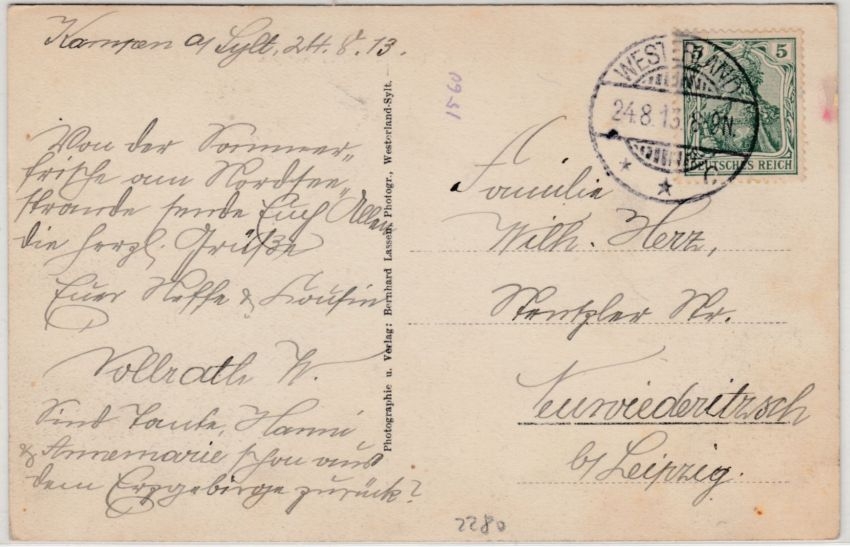 Kampen a/ Sylt, 24.8.13.
Von der Sommer-
frische am Nordsee-
strande sende Euch Allen
die herzl. Grüße
Euer Neffe & Cousin
Vollrath W.
Sind Tante, Hanni
& Annemarie schon aus
dem Erzgebirge zurück?
Photographie u. Verlag: Bernhard Lassen, Photogr., Westerland-Sylt.
1560
WESTERLAND
24.8.13. 8-9N.
* * C.
5
DEUTSCHES REICH
Familie
Wilh. Herz,
Str.
Neuwiederitzsch
b/ Leipzig.
2280